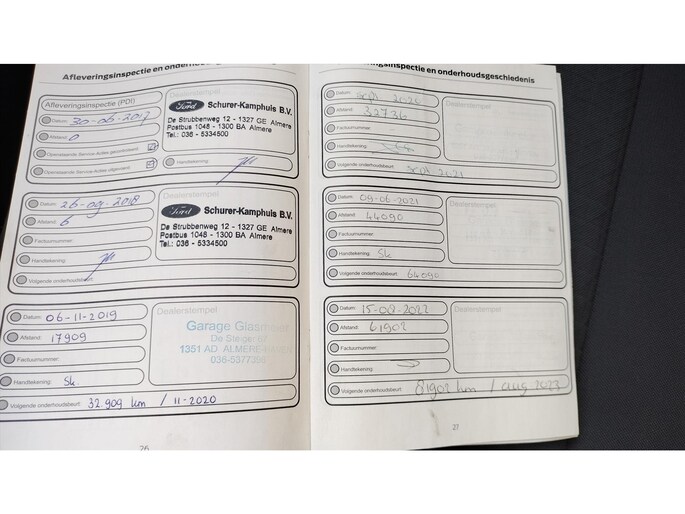 Afleveringsinspectie en
Afleveringsinspectie (PDI)
Datum: 30-06-2017
Afstand: 0
Openstaande Service-Acties gecontroleerd:
Openstaande Service-Acties uitgevoerd:
Dealerstempel
Ford
Schurer-Kamphuis B.V.
De Strubbenweg 12 - 1327 GE Almere
Postbus 1046 - 1300 BA Almere
Tel.: 036 - 5334500
Handtekening:
Datum: 26-09-2018
Afstand: 6
Factuurnummer:
Handtekening:
Volgende onderhoudsbeurt:
Dealerstempel
Ford
Schurer-Kamphuis B.V.
De Strubbenweg 12 - 1327 GE Almere
Postbus 1046 - 1300 BA Almere
Tel.: 036 - 5334500
Datum: 06-11-2019
Afstand: 17909
Factuurnummer:
Handtekening: Sk.
Volgende onderhoudsbeurt: 32.909 km / 11-2020
Dealerstempel
Garage
1351 AD ALMERE
26
en onderhoudsgeschiedenis
Datum: 2020
Afstand: 32736
Factuurnummer:
Handtekening:
Volgende onderhoudsbeurt: 2021
Dealerstempel
Datum: 09-06-2021
Afstand: 44090
Factuurnummer:
Handtekening: Sk
Volgende onderhoudsbeurt: 64090
Dealerstempel
Datum: 15-08-2022
Afstand: 61902
Factuurnummer:
Handtekening:
Volgende onderhoudsbeurt: 81902 km / aug 2023
Dealerstempel
27